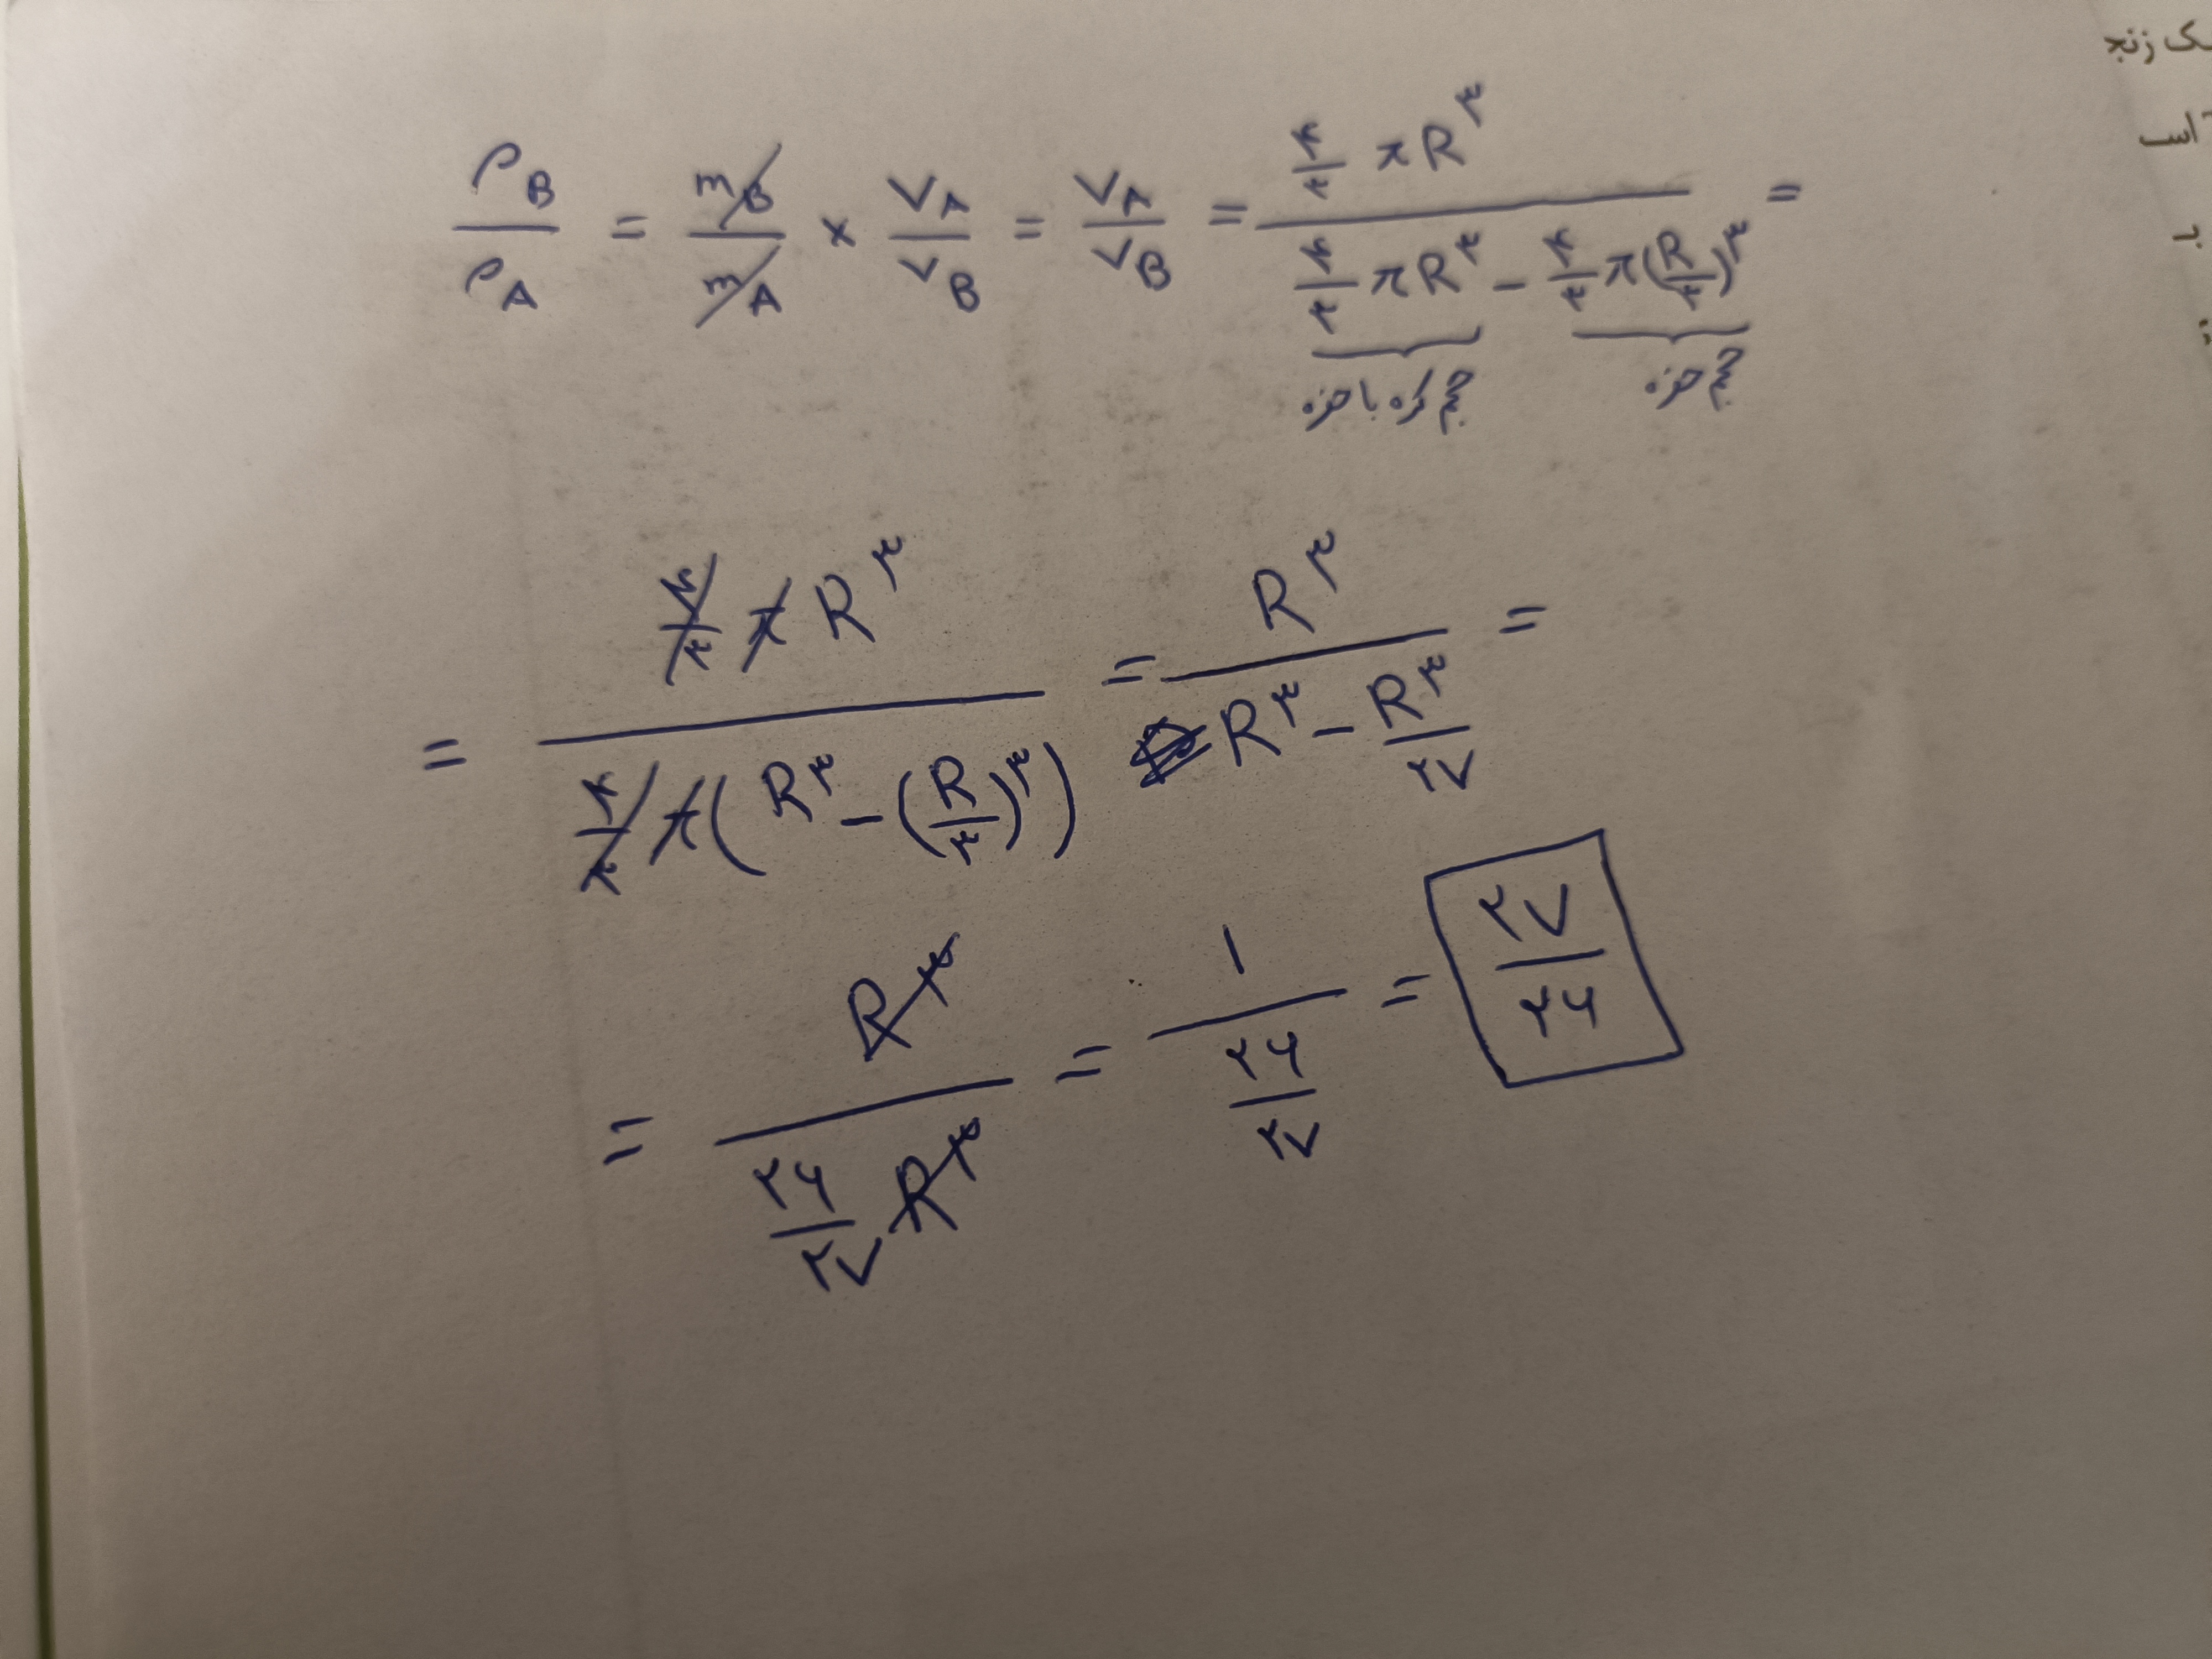 ρB/ρA = mB/mA × VA/VB = VA/VB = (۴/۳ πR^۳)/(۴/۳ πR^۳ − ۴/۳ π(R/۳)^۳) =
حجم کره با حفره
حجم حفره
= (۴/۳ πR^۳)/(۴/۳ π(R^۳ − (R/۳)^۳)) = R^۳/(R^۳ − R^۳/۲۷) =
= R^۳/(۲۶/۲۷ R^۳) = ۱/(۲۶/۲۷) = ۲۷/۲۶